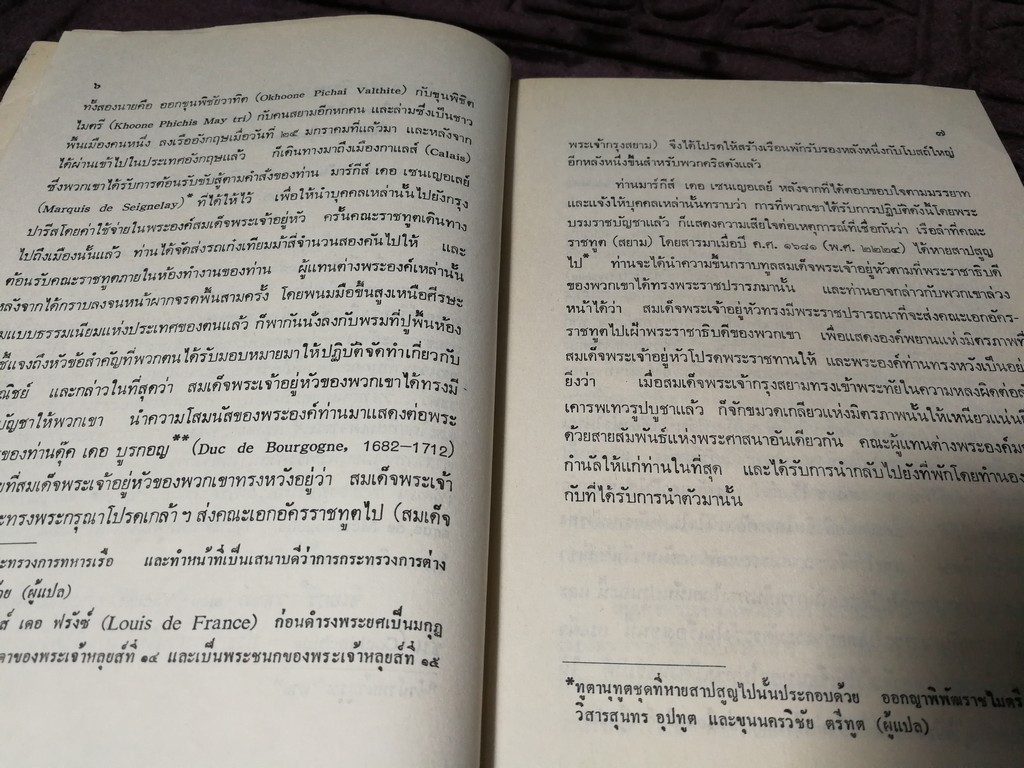 ๖
ทั้งสองนายคือ ออกขุนพิชัยวาทิต (Okhoone Pichai Valthite) กับขุนพิชิต
ไมตรี (Khoone Phichis May tri) กับคนสยามอีกหกคน และล่ามซึ่งเป็นชาว
พื้นเมืองคนหนึ่ง ลงเรืออังกฤษเมื่อวันที่ ๒๕ มกราคมที่แล้วมา และหลังจาก
ได้ผ่านเข้าไปในประเทศอังกฤษแล้ว ก็เดินทางมาถึงเมืองกาแลส์ (Calais)
ซึ่งพวกเขาได้รับการต้อนรับขับสู้ตามคำสั่งของท่าน มาร์กีส์ เดอ เซนเญอเลย์
(Marquis de Seignelay)* ที่ได้ให้ไว้ เพื่อให้นำบุคคลเหล่านั้นไปยังกรุง
ปารีสโดยค่าใช้จ่ายในพระองค์สมเด็จพระเจ้าอยู่หัว ครั้นคณะราชทูตเดินทาง
ไปถึงเมืองนั้นแล้ว ท่านได้จัดส่งรถเก๋งเทียมม้าสี่จำนวนสองคันไปให้ และ
ต้อนรับคณะราชทูตภายในห้องทำงานของท่าน ผู้แทนต่างพระองค์เหล่านั้น
หลังจากได้กราบลงจนหน้าผากจรดพื้นสามครั้ง โดยพนมมือขึ้นสูงเหนือศีรษะ
มแบบธรรมเนียมแห่งประเทศของตนแล้ว ก็พากันนั่งลงกับพรมที่ปูพื้นห้อง
ชี้แจงถึงหัวข้อสำคัญที่พวกตนได้รับมอบหมายมาให้ปฏิบัติจัดทำเกี่ยวกับ
ณิชย์ และกล่าวในที่สุดว่า สมเด็จพระเจ้าอยู่หัวของพวกเขาได้ทรงมี
บัญชาให้พวกเขา นำความโสมนัสของพระองค์ท่านมาแสดงต่อพระ
ของท่านดุ๊ค เดอ บูรกอญ** (Duc de Bourgogne, 1682–1712)
ยที่สมเด็จพระเจ้าอยู่หัวของพวกเขาทรงหวังอยู่ว่า สมเด็จพระเจ้า
ะทรงพระกรุณาโปรดเกล้า ฯ ส่งคณะเอกอัครราชทูตไป (สมเด็จ
ะทรวงการทหารเรือ และทำหน้าที่เป็นเสนาบดีว่าการกระทรวงการต่าง
วย (ผู้แปล)
ส์ เดอ ฟรังซ์ (Louis de France) ก่อนดำรงพระยศเป็นมกุฎ
ดาของพระเจ้าหลุยส์ที่ ๑๔ และเป็นพระชนกของพระเจ้าหลุยส์ที่ ๑๕
๗
พระเจ้ากรุงสยาม) จึงได้โปรดให้สร้างเรือนพักรับรองหลังหนึ่งกับโบสถ์ใหญ่
อีกหลังหนึ่งขึ้นสำหรับพวกคริสตังแล้ว
ท่านมาร์กีส์ เดอ เซนเญอเลย์ หลังจากที่ได้ตอบขอบใจตามมรรยาท
และแจ้งให้บุคคลเหล่านั้นทราบว่า การที่พวกเขาได้รับการปฏิบัติดังนี้โดยพระ
บรมราชบัญชาแล้ว ก็แสดงความเสียใจต่อเหตุการณ์ที่เชื่อกันว่า เรือลำที่คณะ
ราชทูต (สยาม) โดยสารมาเมื่อปี ค.ศ. ๑๖๘๑ (พ.ศ. ๒๒๒๔) ได้หายสาปสูญ
ไป* ท่านจะได้นำความขึ้นกราบทูลสมเด็จพระเจ้าอยู่หัวตามที่พระราชาธิบดี
ของพวกเขาได้ทรงพระราชปรารภมานั้น และท่านอาจกล่าวกับพวกเขาล่วง
หน้าได้ว่า สมเด็จพระเจ้าอยู่หัวทรงมีพระราชปรารถนาที่จะส่งคณะเอกอัคร-
ราชทูตไปเฝ้าพระราชาธิบดีของพวกเขา เพื่อแสดงองค์พยานแห่งมิตรภาพที่
สมเด็จพระเจ้าอยู่หัวโปรดพระราชทานให้ และพระองค์ท่านทรงหวังเป็นอย่
ยิ่งว่า เมื่อสมเด็จพระเจ้ากรุงสยามทรงเข้าพระทัยในความหลงผิดต่อลั
เคารพเทวรูปบูชาแล้ว ก็จักขมวดเกลียวแห่งมิตรภาพนั้นให้เหนียวแน่นยิ
ด้วยสายสัมพันธ์แห่งพระศาสนาอันเดียวกัน คณะผู้แทนต่างพระองค์มอ
กำนัลให้แก่ท่านในที่สุด และได้รับการนำกลับไปยังที่พักโดยทำนอง
กับที่ได้รับการนำตัวมานั้น
*ทูตานุทูตชุดที่หายสาปสูญไปนั้นประกอบด้วย ออกญาพิพัฒราชไมตรี
วิสารสุนทร อุปทูต และขุนนครวิชัย ตรีทูต (ผู้แปล)